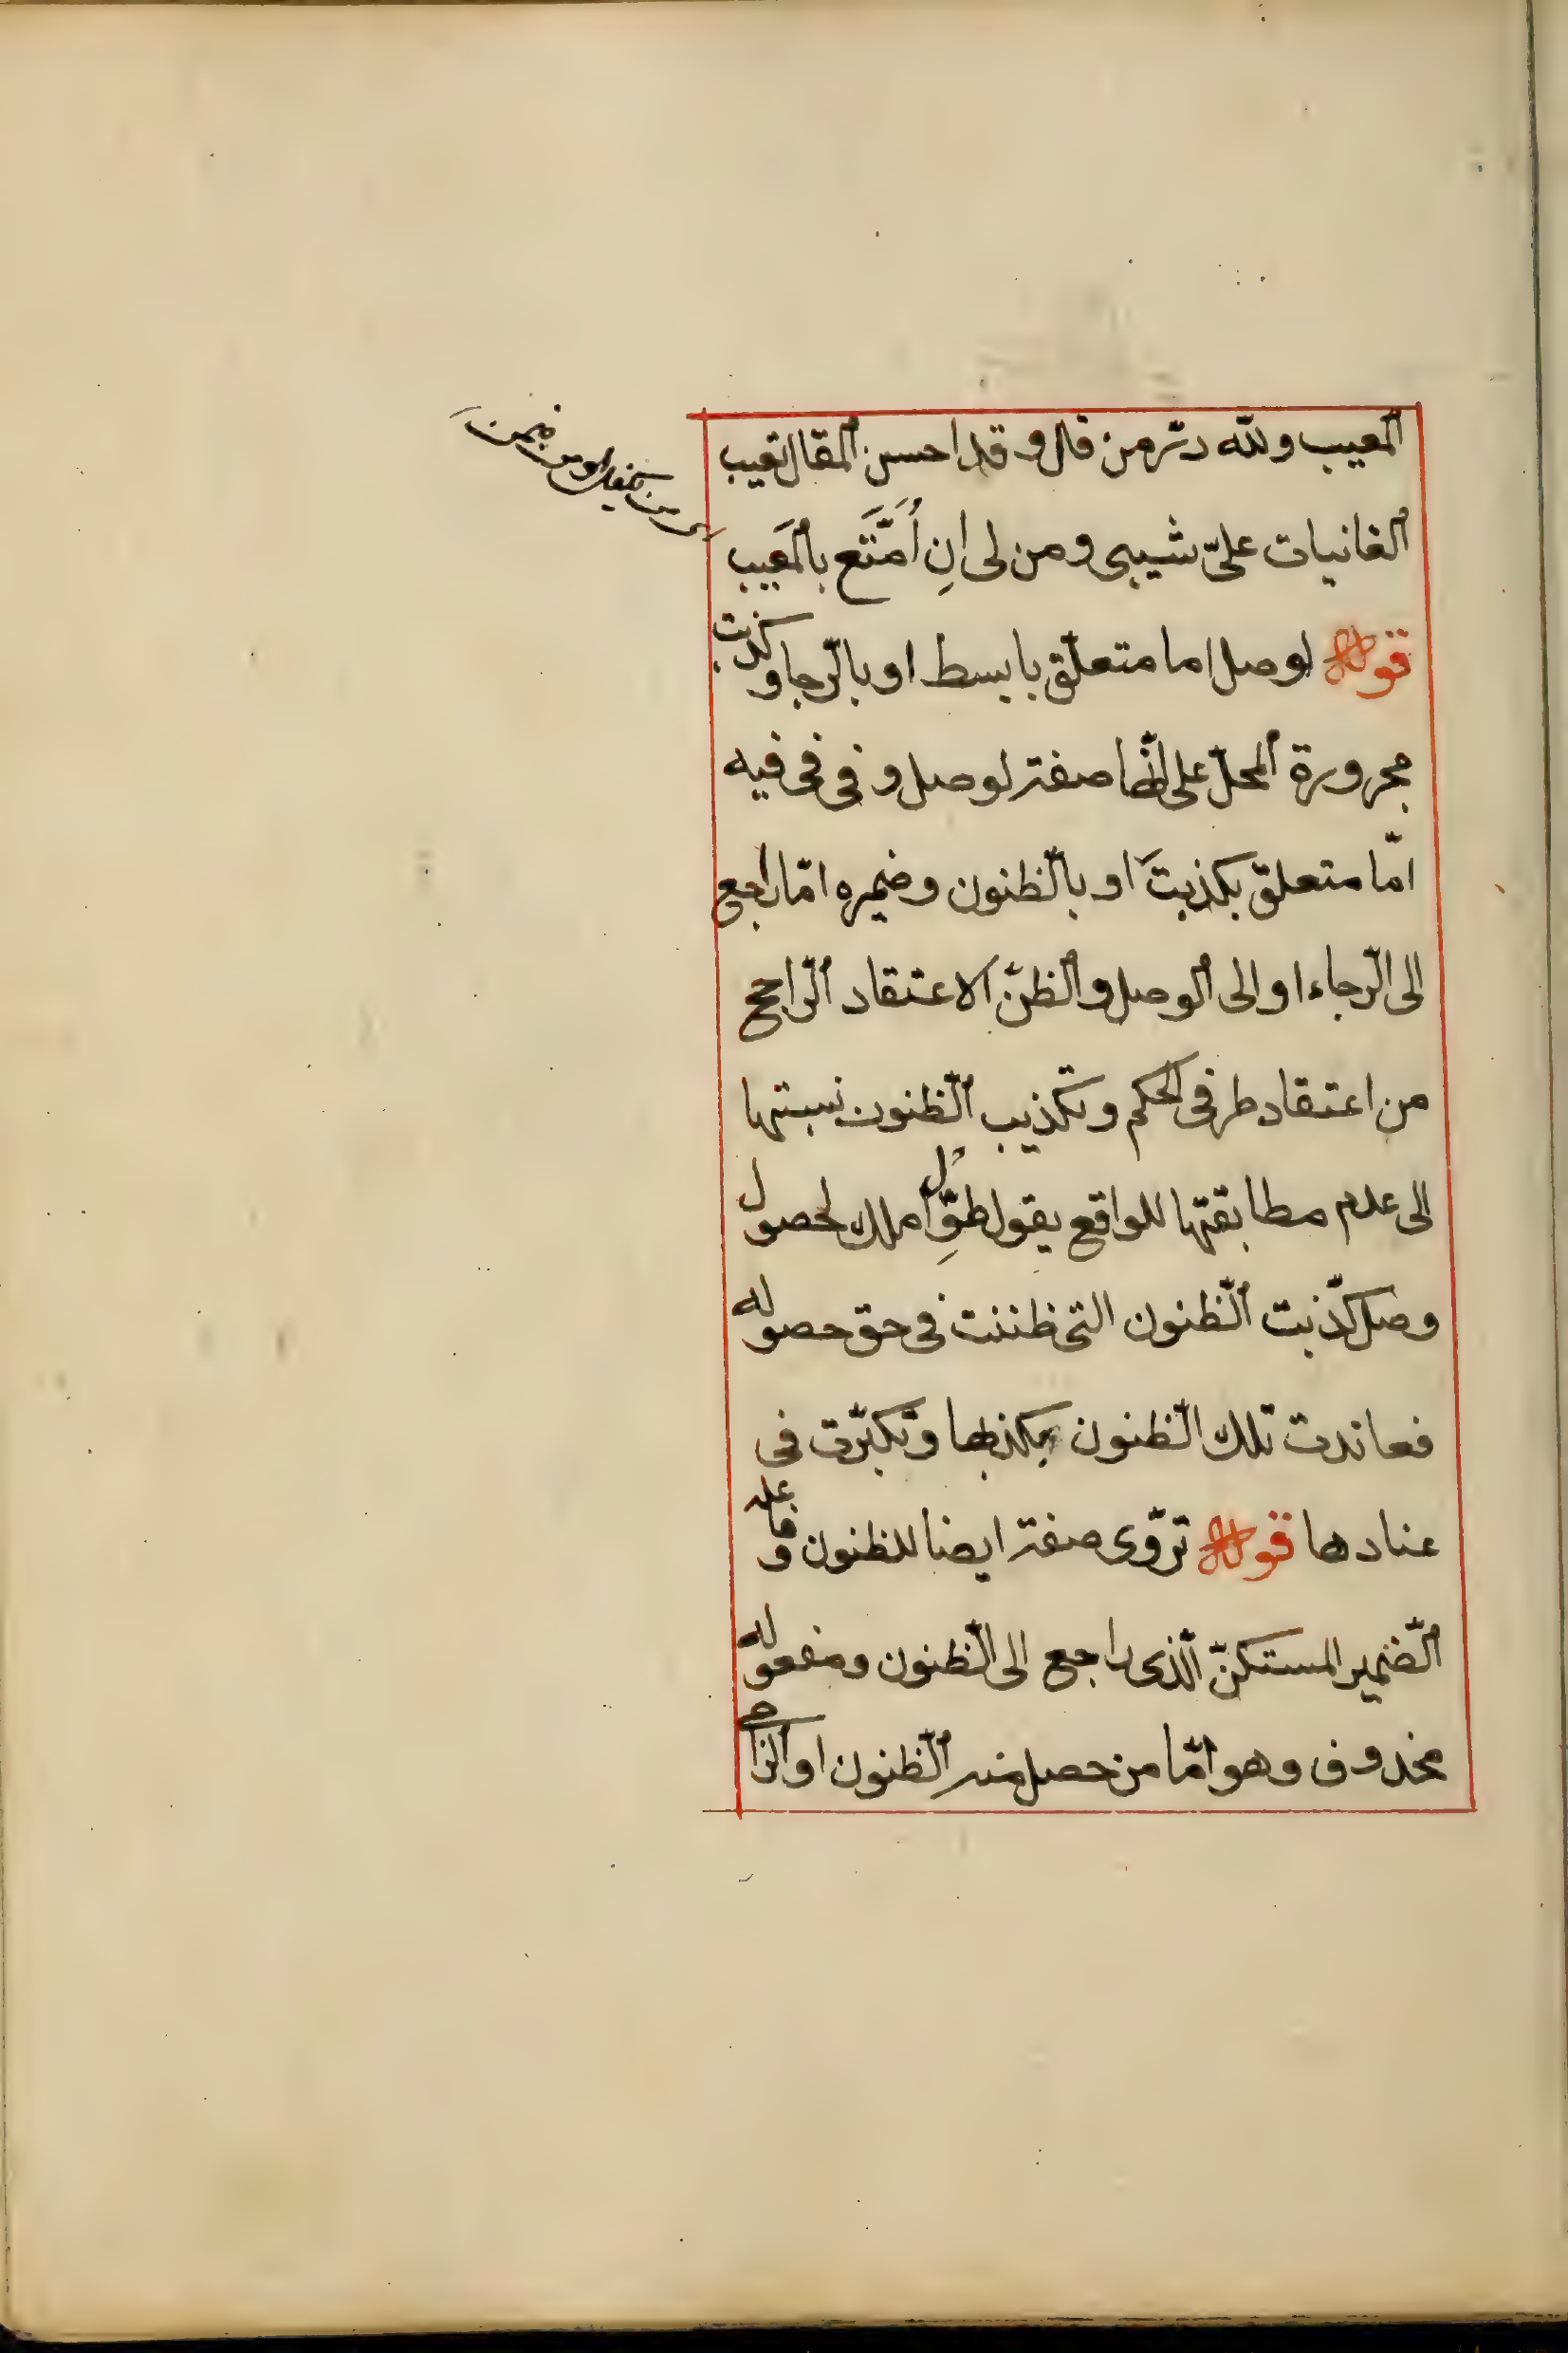 المعيب ولله درّ من قال و قد احسن المقال تعيب
الغانيات علىّ شيبى ومن لى انِ اُمَتَّع بالمَعيب
قوله لوصل اما متعلّق بابسط او بالرّجا وكذبت
مجرورة المحلّ على انّها صفة لوصل و فى فى فيه
امّا متعلق بكذبتَ او بالظنون وضميره امّا راجع
الى الرّجاء او الى الوصل والظنّ الاعتقاد الرّاجح
من اعتقاد طرفى الحكم وتكذيب الظنون نسبتها
الى عدم مطابقتها للواقع يقول طوِّل املك لحصول
وصل كذّبت الظنون التى ظننت فى حق حصوله
فعاندت تلك الظنون بكذبها وتكبّرت فى
عنادها قوله تروّى صفة ايضا للظنون وفاعله
الضّمير المستكنّ الذى راجع الى الظنون ومفعوله
محذوف وهو امّا من حصل منه الظنون او الرّا